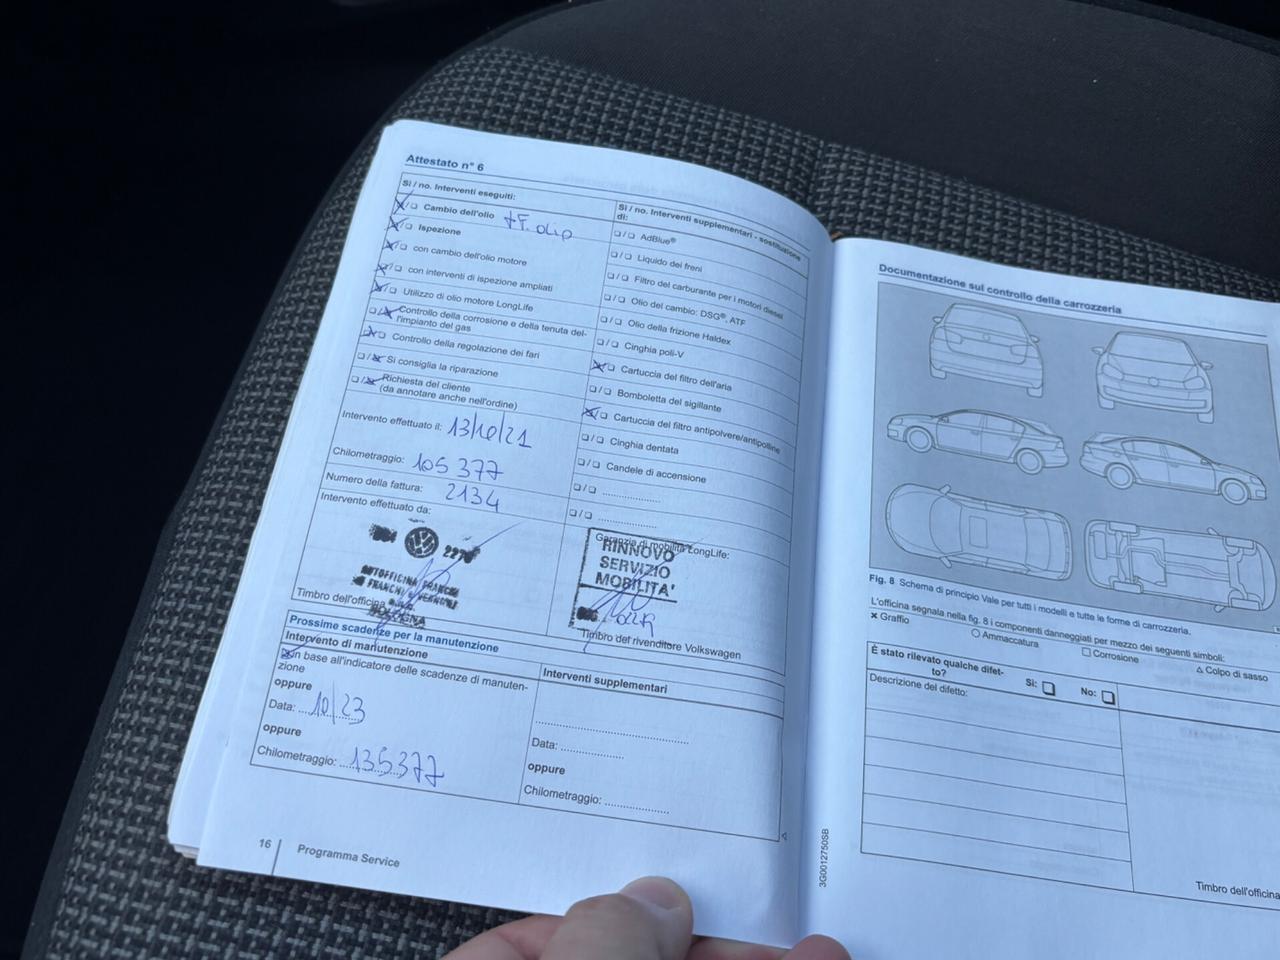 Attestato n° 6
Si / no. Interventi eseguiti:
Cambio dell'olio + F. olio
Ispezione
con cambio dell'olio motore
con interventi di ispezione ampliati
Utilizzo di olio motore LongLife
Controllo della corrosione e della tenuta del-
l'impianto del gas
Controllo della regolazione dei fari
Si consiglia la riparazione
Richiesta del cliente
(da annotare anche nell'ordine)
Intervento effettuato il: 13/10/21
Chilometraggio: 105 377
Numero della fattura: 2134
Intervento effettuato da:
AUTOFFICINA FRANCHI
BOLOGNA
Timbro dell'officina
Si / no. Interventi supplementari - sostituzione
di:
AdBlue®
Liquido dei freni
Filtro del carburante per i motori diesel
Olio del cambio: DSG®, ATF
Olio della frizione Haldex
Cinghia poli-V
Cartuccia del filtro dell'aria
Bomboletta del sigillante
Cartuccia del filtro antipolvere/antipolline
Cinghia dentata
Candele di accensione
Garanzia di mobilità LongLife:
RINNOVO
SERVIZIO
MOBILITA'
Timbro del rivenditore Volkswagen
Prossime scadenze per la manutenzione
Intervento di manutenzione
in base all'indicatore delle scadenze di manuten-
zione
oppure
Data: 10/23
oppure
Chilometraggio: 135377
Interventi supplementari
Data:
oppure
Chilometraggio:
16 Programma Service
Documentazione sul controllo della carrozzeria
Fig. 8 Schema di principio Vale per tutti i modelli e tutte le forme di carrozzeria.
L'officina segnala nella fig. 8 i componenti danneggiati per mezzo dei seguenti simboli:
× Graffio ○ Ammaccatura □ Corrosione △ Colpo di sasso
È stato rilevato qualche difet-
to? Si: No:
Descrizione del difetto:
Timbro dell'officina
3G0012750SB